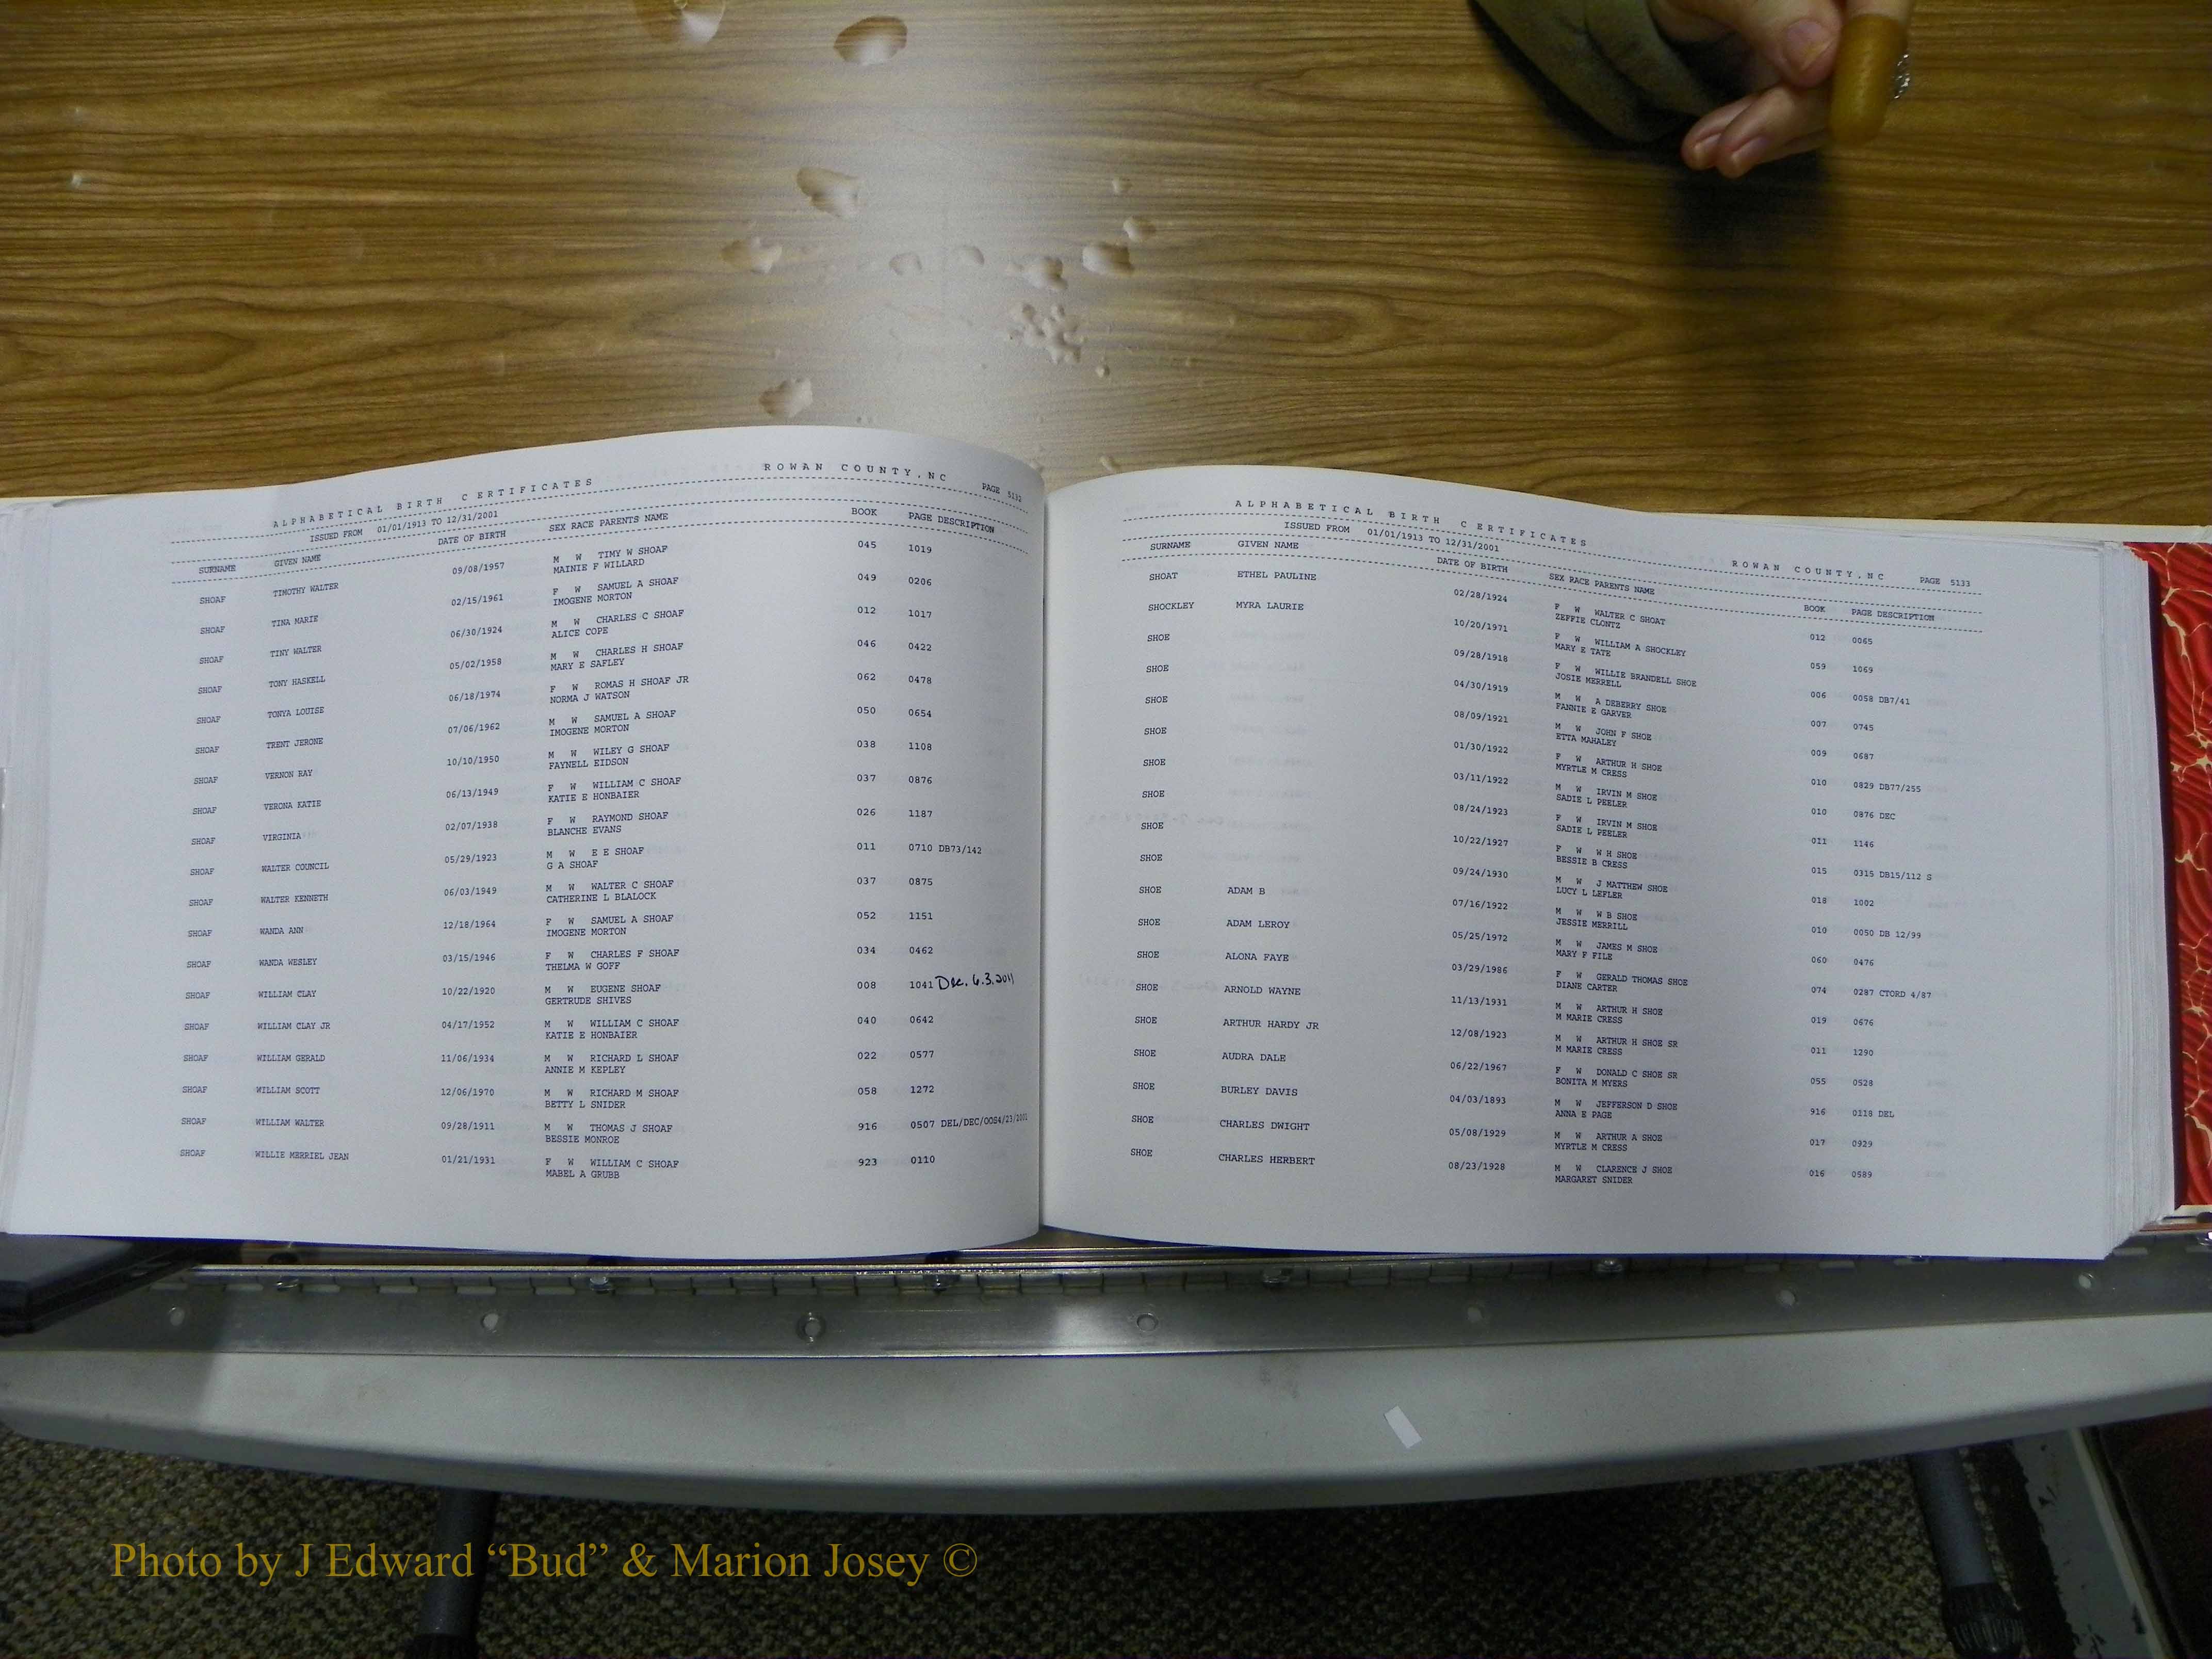 ALPHABETICAL BIRTH CERTIFICATES ROWAN COUNTY, NC PAGE 5132
ISSUED FROM 01/01/1913 TO 12/31/2001
SURNAME GIVEN NAME DATE OF BIRTH SEX RACE PARENTS NAME BOOK PAGE DESCRIPTION
SHOAF TIMOTHY WALTER 09/08/1957 M W TIMY W SHOAF 045 1019
MAINIE F WILLARD
SHOAF TINA MARIE 02/15/1961 F W SAMUEL A SHOAF 049 0206
IMOGENE MORTON
SHOAF TINY WALTER 06/30/1924 M W CHARLES C SHOAF 012 1017
ALICE COPE
SHOAF TONY HASKELL 05/02/1958 M W CHARLES H SHOAF 046 0422
MARY E SAFLEY
SHOAF TONYA LOUISE 06/18/1974 F W ROMAS H SHOAF JR 062 0478
NORMA J WATSON
SHOAF TRENT JERONE 07/06/1962 M W SAMUEL A SHOAF 050 0654
IMOGENE MORTON
SHOAF VERNON RAY 10/10/1950 M W WILEY G SHOAF 038 1108
FAYNELL EIDSON
SHOAF VERONA KATIE 06/13/1949 F W WILLIAM C SHOAF 037 0876
KATIE E HONBAIER
SHOAF VIRGINIA 02/07/1938 F W RAYMOND SHOAF 026 1187
BLANCHE EVANS
SHOAF WALTER COUNCIL 05/29/1923 M W E E SHOAF 011 0710 DB73/142
G A SHOAF
SHOAF WALTER KENNETH 06/03/1949 M W WALTER C SHOAF 037 0875
CATHERINE L BLALOCK
SHOAF WANDA ANN 12/18/1964 F W SAMUEL A SHOAF 052 1151
IMOGENE MORTON
SHOAF WANDA WESLEY 03/15/1946 F W CHARLES F SHOAF 034 0462
THELMA W GOFF
SHOAF WILLIAM CLAY 10/22/1920 M W EUGENE SHOAF 008 1041 Dec. 6.3.2011
GERTRUDE SHIVES
SHOAF WILLIAM CLAY JR 04/17/1952 M W WILLIAM C SHOAF 040 0642
KATIE E HONBAIER
SHOAF WILLIAM GERALD 11/06/1934 M W RICHARD L SHOAF 022 0577
ANNIE M KEPLEY
SHOAF WILLIAM SCOTT 12/06/1970 M W RICHARD M SHOAF 058 1272
BETTY L SNIDER
SHOAF WILLIAM WALTER 09/28/1911 M W THOMAS J SHOAF 916 0507 DEL/DEC/0054/23/2001
BESSIE MONROE
SHOAF WILLIE MERRIEL JEAN 01/21/1931 F W WILLIAM C SHOAF 923 0110
MABEL A GRUBB
ALPHABETICAL BIRTH CERTIFICATES ROWAN COUNTY, NC PAGE 5133
ISSUED FROM 01/01/1913 TO 12/31/2001
SURNAME GIVEN NAME DATE OF BIRTH SEX RACE PARENTS NAME BOOK PAGE DESCRIPTION
SHOAT ETHEL PAULINE 02/28/1924 F W WALTER C SHOAT 012 0065
ZEFFIE CLONTZ
SHOCKLEY MYRA LAURIE 10/20/1971 F W WILLIAM A SHOCKLEY 059 1069
MARY E TATE
SHOE 09/28/1918 F W WILLIE BRANDELL SHOE 006 0058 DB7/41
JOSIE MERRELL
SHOE 04/30/1919 M W A DEBERRY SHOE 007 0745
FANNIE E GARVER
SHOE 08/09/1921 M W JOHN F SHOE 009 0687
ETTA MAHALEY
SHOE 01/30/1922 F W ARTHUR H SHOE 010 0829 DB77/255
MYRTLE M CRESS
SHOE 03/11/1922 M W IRVIN M SHOE 010 0876 DEC
SADIE L PEELER
SHOE 08/24/1923 F W IRVIN M SHOE 011 1146
SADIE L PEELER
SHOE 10/22/1927 F W W H SHOE 015 0315 DB15/112 S
BESSIE B CRESS
SHOE 09/24/1930 M W J MATTHEW SHOE 018 1002
LUCY L LEFLER
SHOE ADAM B 07/16/1922 M W W B SHOE 010 0050 DB 12/99
JESSIE MERRILL
SHOE ADAM LEROY 05/25/1972 M W JAMES M SHOE 060 0476
MARY F FILE
SHOE ALONA FAYE 03/29/1986 F W GERALD THOMAS SHOE 074 0287 CTORD 4/87
DIANE CARTER
SHOE ARNOLD WAYNE 11/13/1931 M W ARTHUR H SHOE 019 0676
M MARIE CRESS
SHOE ARTHUR HARDY JR 12/08/1923 M W ARTHUR H SHOE SR 011 1290
M MARIE CRESS
SHOE AUDRA DALE 06/22/1967 F W DONALD C SHOE SR 055 0528
BONITA M MYERS
SHOE BURLEY DAVIS 04/03/1893 M W JEFFERSON D SHOE 916 0118 DEL
ANNA E PAGE
SHOE CHARLES DWIGHT 05/08/1929 M W ARTHUR A SHOE 017 0929
MYRTLE M CRESS
SHOE CHARLES HERBERT 08/23/1928 M W CLARENCE J SHOE 016 0589
MARGARET SNIDER
Photo by J Edward “Bud” & Marion Josey ©